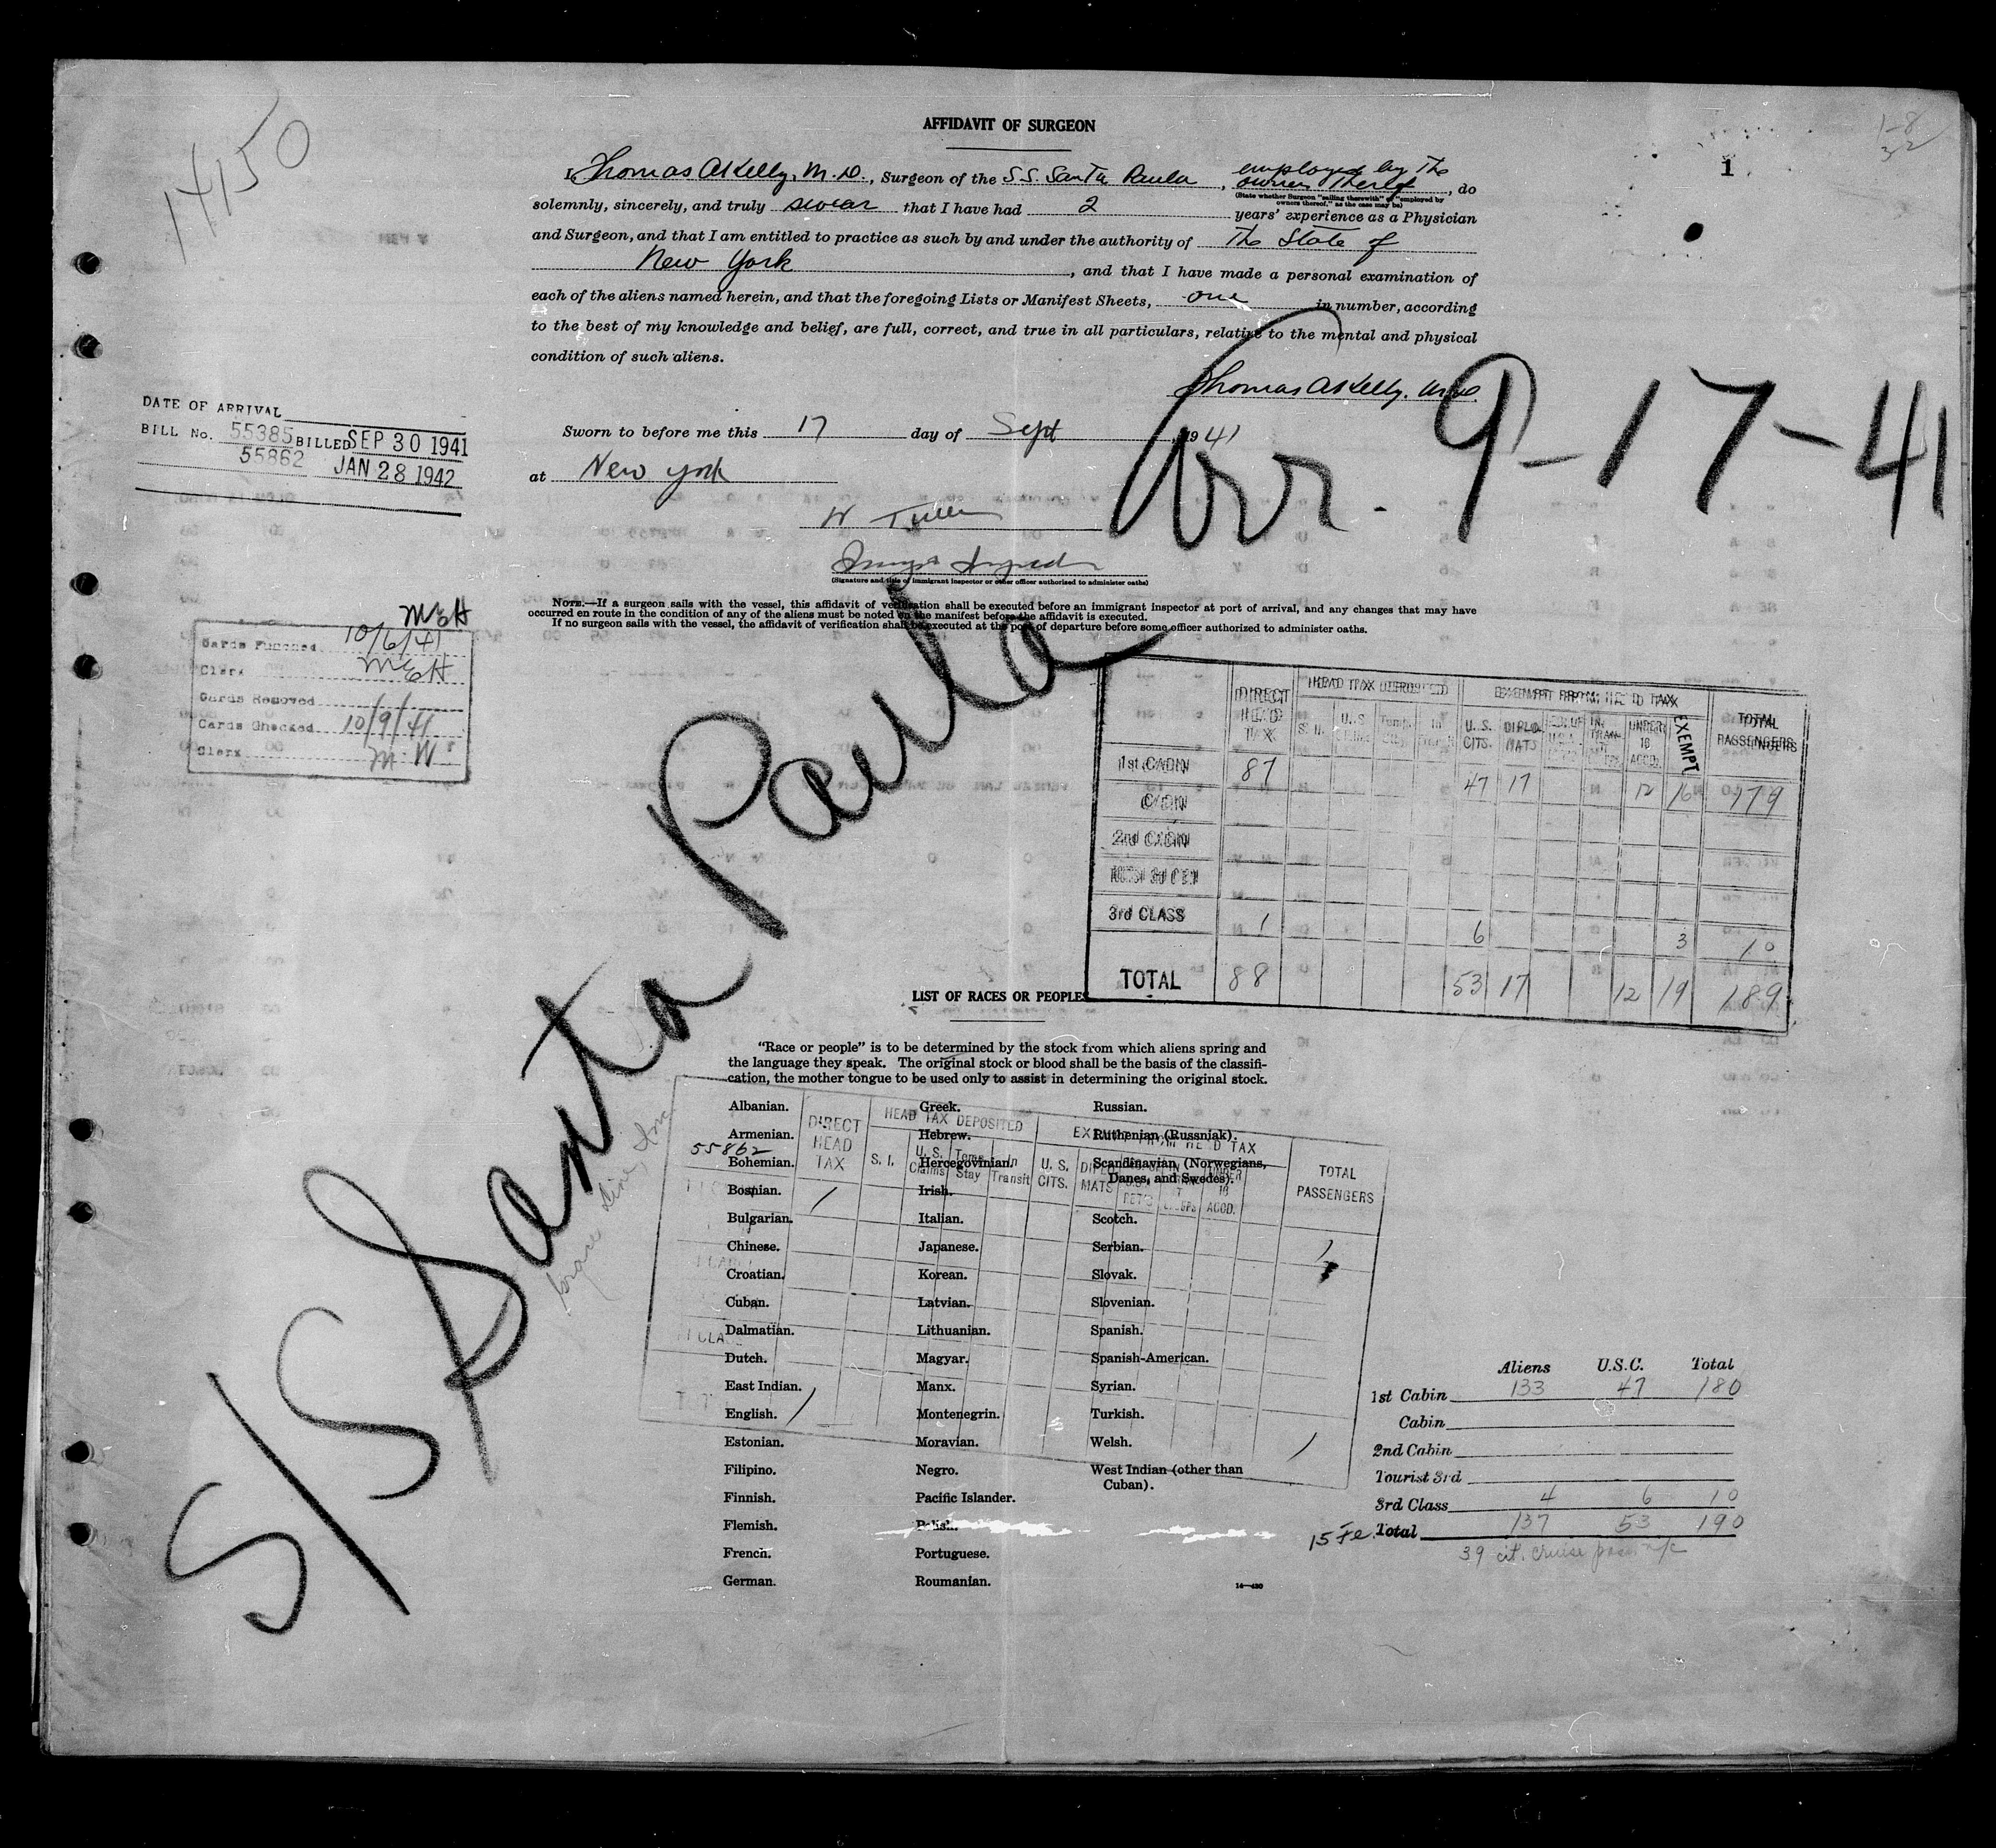 14150
1
AFFIDAVIT OF SURGEON
I, Thomas A Kelly, M.D., Surgeon of the S.S. Santa Paula, employed by the owners thereof, do
(State whether Surgeon "sailing therewith" or "employed by owners thereof," as the case may be)
solemnly, sincerely, and truly swear that I have had 2 years' experience as a Physician
and Surgeon, and that I am entitled to practice as such by and under the authority of The State of
New York, and that I have made a personal examination of
each of the aliens named herein, and that the foregoing Lists or Manifest Sheets, one in number, according
to the best of my knowledge and belief, are full, correct, and true in all particulars, relative to the mental and physical
condition of such aliens.
Thomas A Kelly, M.D.
Sworn to before me this 17 day of Sept, 1941
at New York
(Signature and title of immigrant inspector or other officer authorized to administer oaths)
NOTE.—If a surgeon sails with the vessel, this affidavit of verification shall be executed before an immigrant inspector at port of arrival, and any changes that may have
occurred en route in the condition of any of the aliens must be noted on the manifest before the affidavit is executed.
If no surgeon sails with the vessel, the affidavit of verification shall be executed at the port of departure before some officer authorized to administer oaths.
Arr. 9-17-41
S/S Santa Paula
DATE OF ARRIVAL
BILL No. 55385 BILLED SEP 30 1941
55862 JAN 28 1942
MEH
Cards Punched 10/6/41
Clerk MEH
Cards Removed
Cards Checked 10/9/41
Clerk M.W
DIRECT HEAD TAX HEAD TAX DEPOSITED EXEMPT FROM HEAD TAX TOTAL PASSENGERS
S.I. U.S. Temp. In U.S. CITS. DIPLO MATS UNDER 16 ACCD. EXEMPT
1st CABIN 87 47 17 12 16 179
CABIN
2nd CABIN
3rd CLASS 1 6 3 10
TOTAL 88 53 17 12 19 189
LIST OF RACES OR PEOPLES
"Race or people" is to be determined by the stock from which aliens spring and
the language they speak. The original stock or blood shall be the basis of the classifi-
cation, the mother tongue to be used only to assist in determining the original stock.
Albanian.
Armenian.
Bohemian.
Bosnian.
Bulgarian.
Chinese.
Croatian.
Cuban.
Dalmatian.
Dutch.
East Indian.
English.
Estonian.
Filipino.
Finnish.
Flemish.
French.
German.
Greek.
Hebrew.
Hercegovinian.
Irish.
Italian.
Japanese.
Korean.
Latvian.
Lithuanian.
Magyar.
Manx.
Montenegrin.
Moravian.
Negro.
Pacific Islander.
Polish.
Portuguese.
Roumanian.
Russian.
Ruthenian (Russniak).
Scandinavian (Norwegians,
Danes, and Swedes).
Scotch.
Serbian.
Slovak.
Slovenian.
Spanish.
Spanish-American.
Syrian.
Turkish.
Welsh.
West Indian (other than
Cuban).
14—430
55862
DIRECT HEAD TAX HEAD TAX DEPOSITED EXEMPT FROM HEAD TAX TOTAL PASSENGERS
S.I. U.S. Claims Temp. Stay In Transit U.S. CITS. DIPLO MATS UNDER 16 ACCD.
1 1
1 1
Aliens U.S.C. Total
1st Cabin 133 47 180
Cabin
2nd Cabin
Tourist 3rd
3rd Class 4 6 10
15 Fe. Total 137 53 190
39 cit. cruise pass. n/c